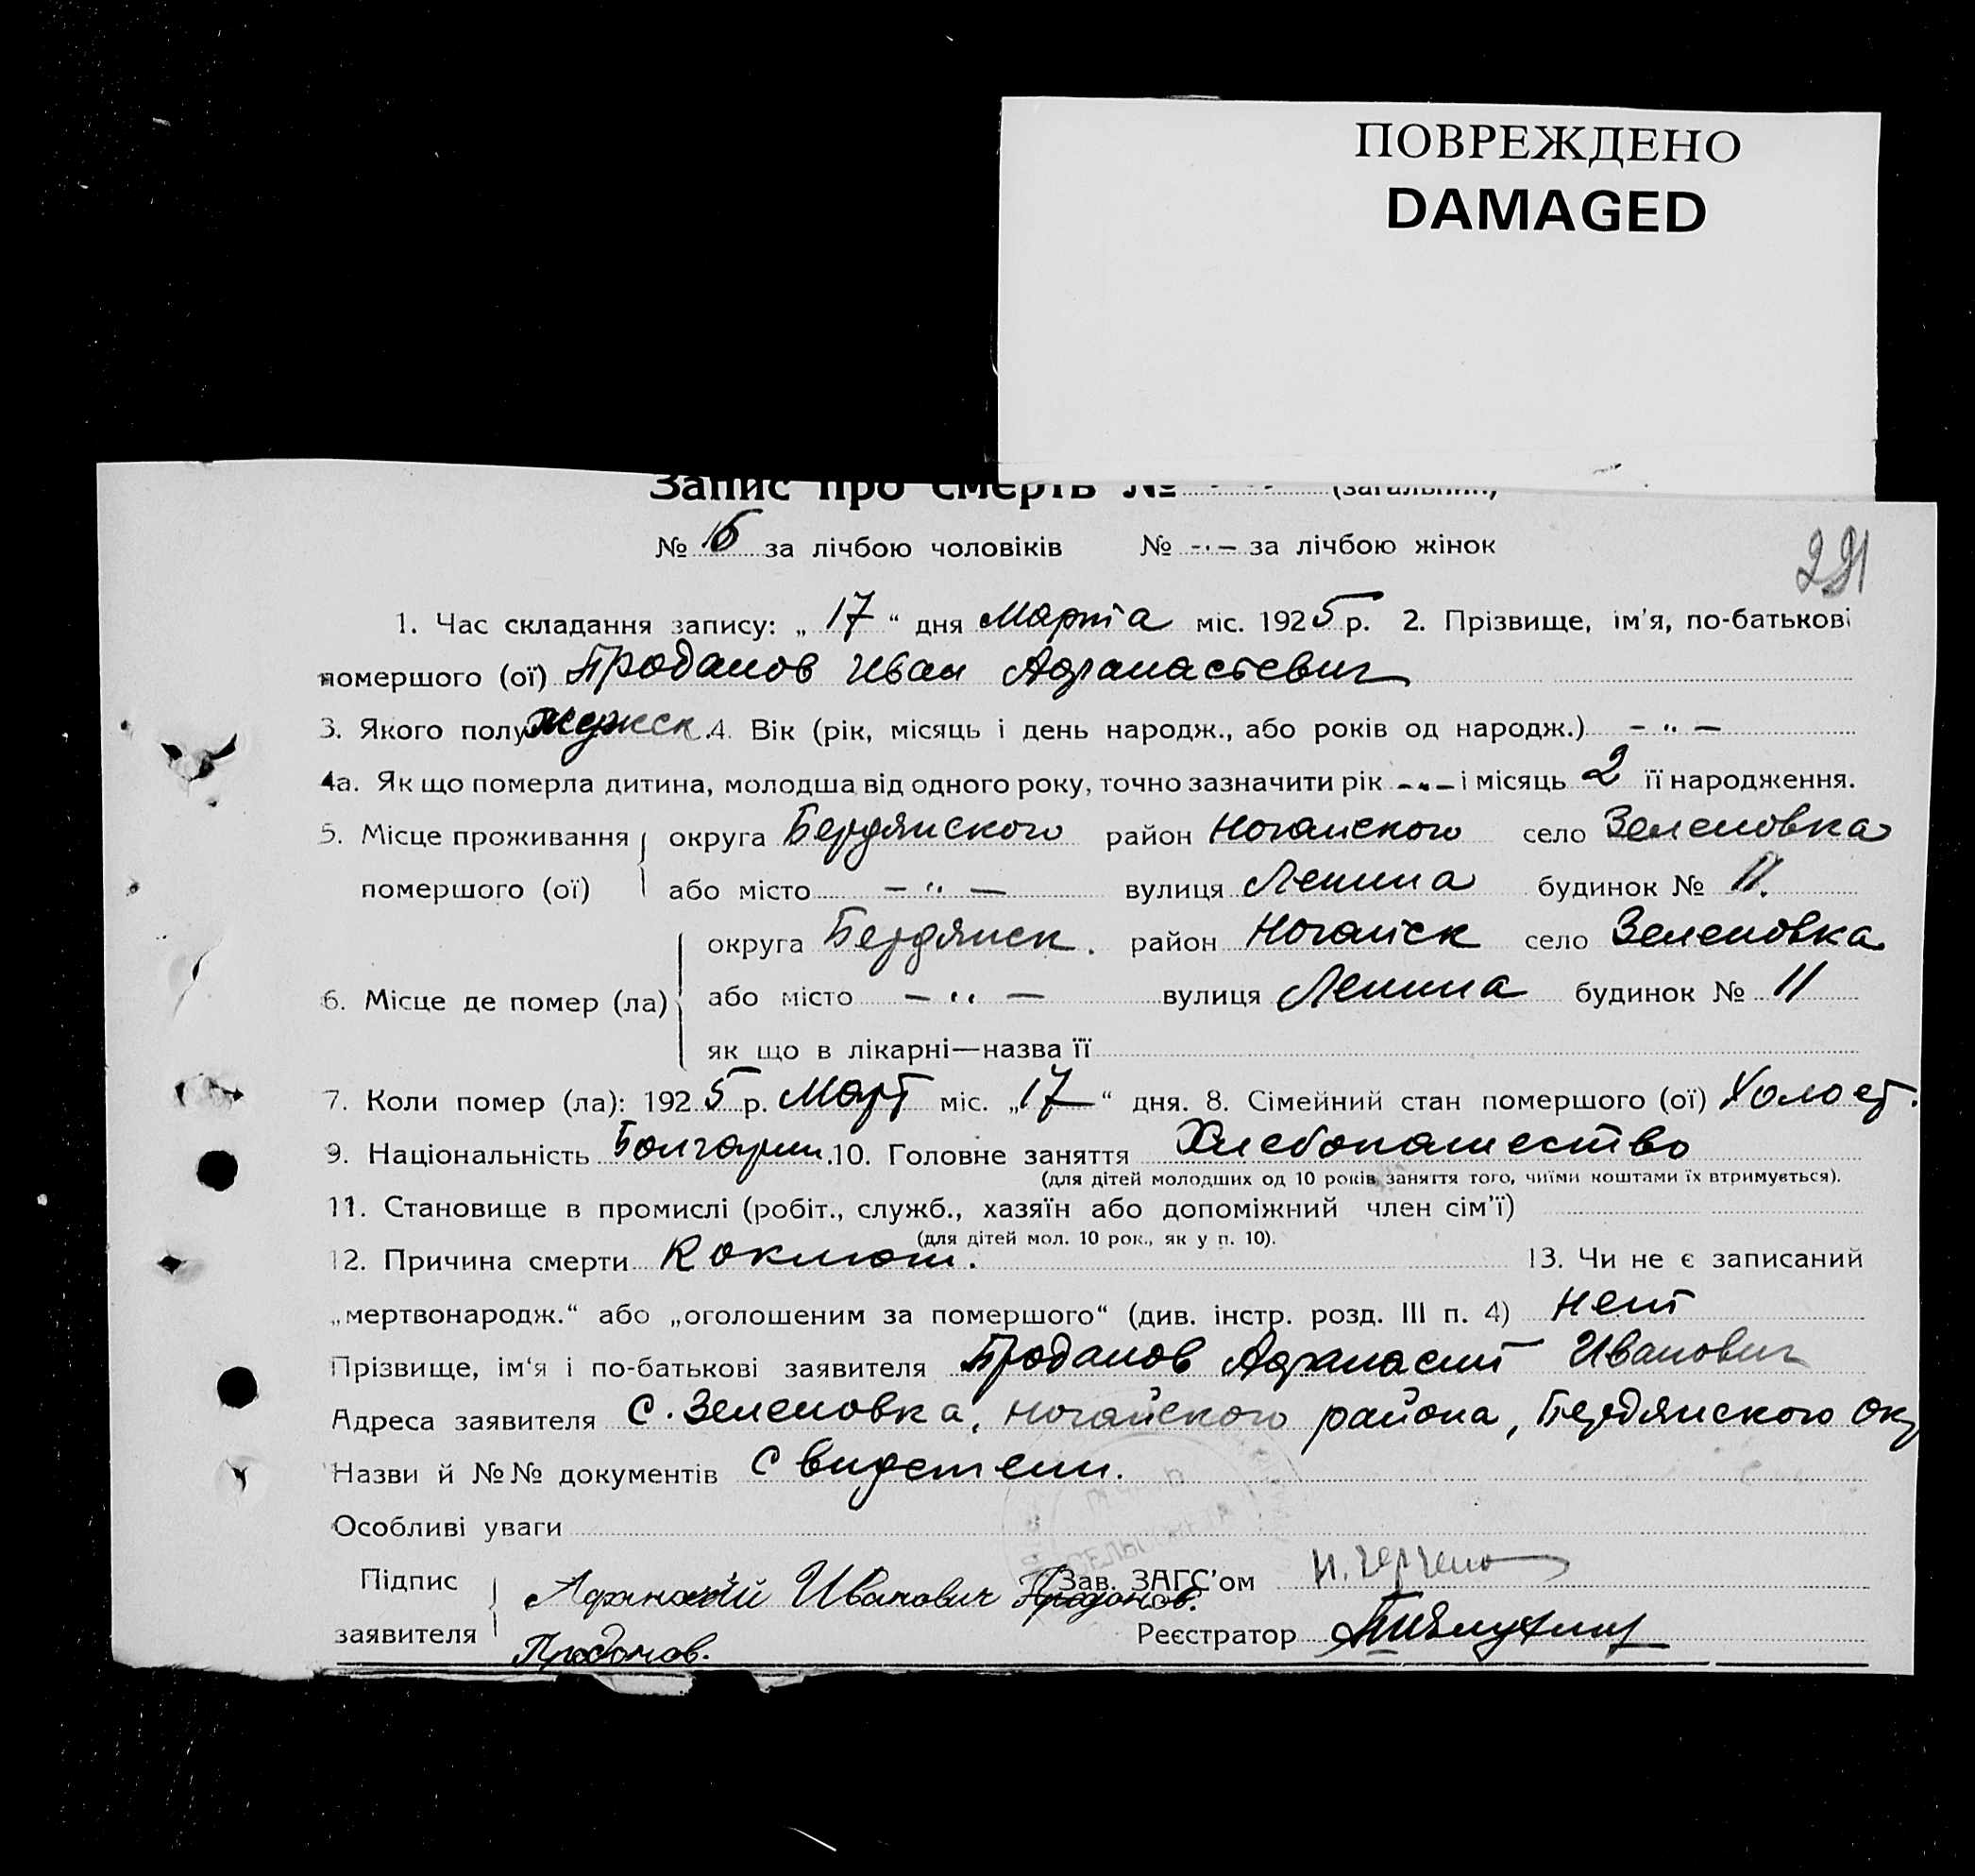 ПОВРЕЖДЕНО
DAMAGED
Запис про смерть № (загальний)
№ за лічбою чоловіків № -·- за лічбою жінок
291
1. Час складання запису: „ 17 “ дня Марта міс. 1925 р. 2. Прізвище, ім'я, по-батькові
помершого (ої) Проданов Иван Афанасьевич
3. Якого полу мужск. 4. Вік (рік, місяць і день народж., або років од народж.) - „ -
4а. Як що померла дитина, молодша від одного року, точно зазначити рік - „ - і місяць 2 її народження.
5. Місце проживання округа Бердянского район Ногайского село Зеленовка
помершого (ої) або місто - „ - вулиця Ленина будинок № 11.
округа Бердянск. район Ногайск село Зеленовка
6. Місце де помер (ла) або місто - „ - вулиця Ленина будинок № 11
як що в лікарні—назва її
7. Коли помер (ла): 1925 р. Март міс. „17“ дня. 8. Сімейний стан помершого (ої) Холост.
9. Національність Болгарин. 10. Головне заняття Хлебопашество
(для дітей молодших од 10 років заняття того, чиїми коштами їх втримується).
11. Становище в промислі (робіт., служб., хазяїн або допоміжний член сім'ї)
(для дітей мол. 10 рок., як у п. 10).
12. Причина смерти Коклюш. 13. Чи не є записаний
„мертвонародж.“ або „оголошеним за помершого“ (див. інстр. розд. III п. 4) нет
Прізвище, ім‘я і по-батькові заявителя Проданов Афанасий Иванович
Адреса заявителя с. Зеленовка, Ногайского района, Бердянского Окр
Назви й №№ документів Свидетели.
Особливі уваги
Підпис Афанасий Иванович Проданов. Зав. ЗАГС'ом
заявителя Проданов. Реєстратор